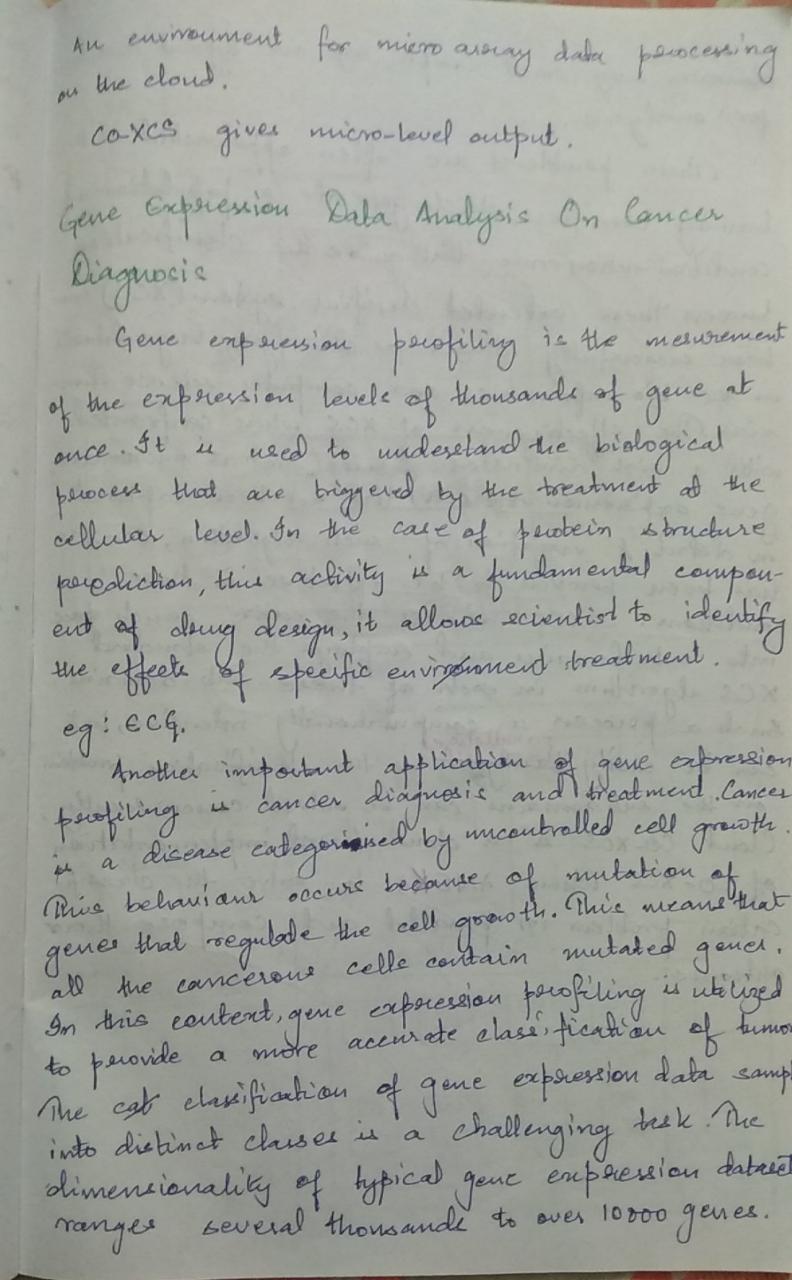 An environment for micro array data processing
on the cloud.
CO-XCS gives micro-level output.
Gene Expression Data Analysis On Cancer
Diagnosis
Gene expression profiling is the mesurement
of the expression levels of thousands of gene at
once. It is used to understand the biological
process that are triggered by the treatment at the
cellular level. In the case of protein structure
prediction, this activity is a fundamental compon-
ent of drug design, it allows scientist to identify
the effects of specific treatment.
eg: ECG.
Another important application of gene expression
profiling is cancer diagnosis and treatment. Cancer
is a disease categorised by uncontrolled cell growth.
This behaviour occurs because of mutation of
genes that regulate the cell growth. This means that
all the cancerous cells contain mutated genes.
In this context, gene expression profiling is utilized
to provide a more accurate classification of tumo
The classification of gene expression data samp
into distinct classes is a challenging task. The
dimensionality of typical gene expression dataset
ranges several thousands to over 10000 genes.